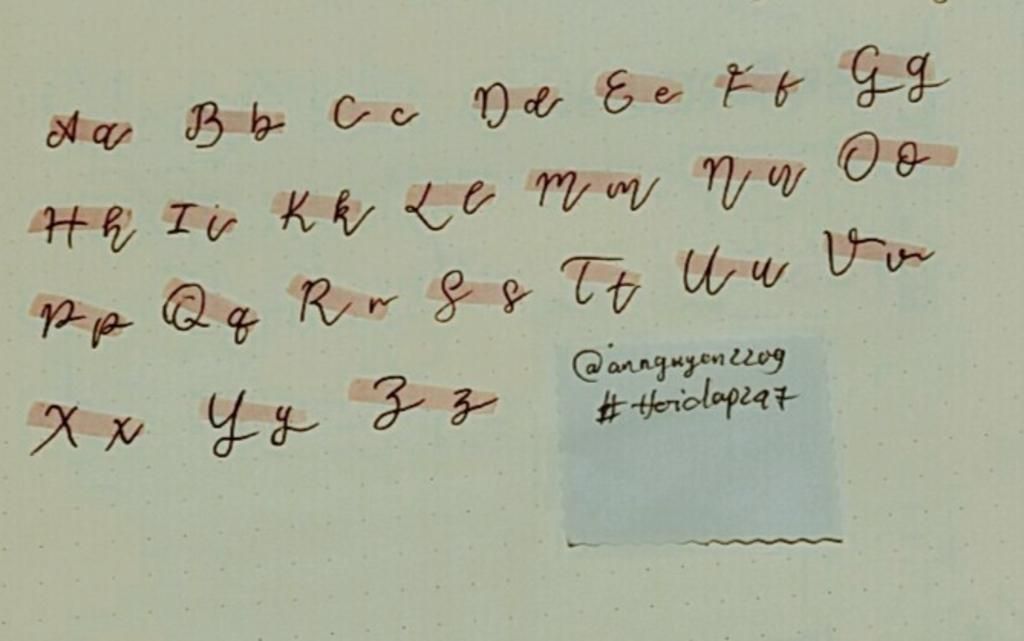 Aa Bb Cc Dd Ee Ff Gg
Hh Ii Kk Ll Mm Nn Oo
Pp Qq Rr Ss Tt Uu Vv
Xx Yy Zz
@annguyen2209
#Hoidap247